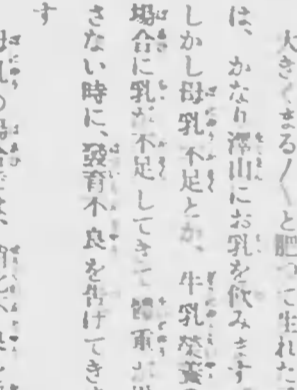 大きくまる〳〵と肥つて生れた
は、かなり澤山にお乳を飮みます
しかし母乳不足とか、牛乳榮養の
場合に乳が不足してきて體重が
さない時に、發育不良を告げてき
す
母乳の場合では、